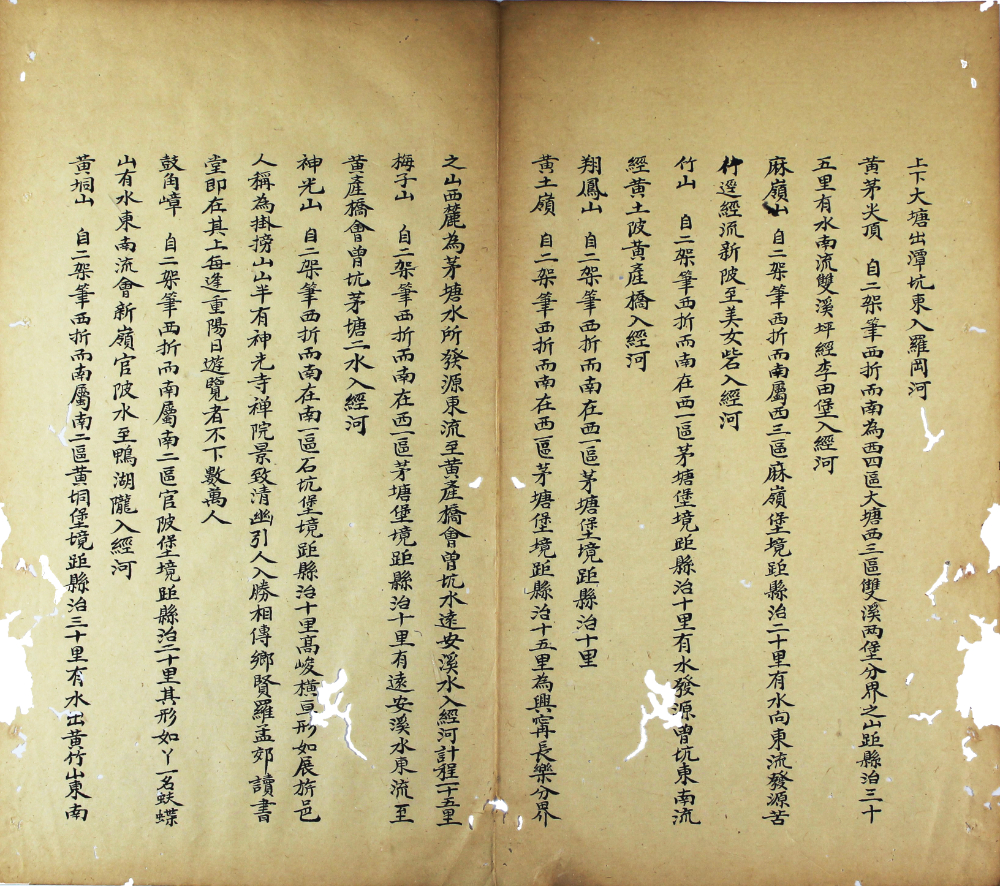 上下大塘出潭坑東入羅岡河
黃茅尖頂　自二架筆西折而南為西四區大塘西三區雙溪两堡分界之山距縣治三十
五里有水南流雙溪坪經李田堡入經河
麻嶺山　自二架筆西折而南屬西三區麻嶺堡境距縣治二十里有水向東流發源苦
竹逕經流新陂至美女砦入經河
竹山　自二架筆西折而南在西一區茅塘堡境距縣治十里有水發源曽坑東南流
經黃土陂黃產橋入經河
翔鳳山　自二架筆西折而南在西一區茅塘堡境距縣治十里
黃土嶺　自二架筆西折而南在西一區茅塘堡境距縣治十五里為興甯長樂分界
之山西麓為茅塘水所發源東流至黃產橋會曽坑水遠安溪水入經河計程二十五里
梅子山　自二架筆西折而南在西一區茅塘堡境距縣治十里有遠安溪水東流至
黃產橋會曽坑茅塘二水入經河
神光山　自二架筆西折而南在南一區石坑堡境距縣治十里高峻橫亘形如展旂邑
人稱為掛搒山山半有神光寺禅院景致清幽引人入勝相傳鄉賢羅孟郊讀書
堂即在其上每逢重陽日遊覽者不下數萬人
鼓角嶂　自二架筆西折而南屬南二區官陂堡境距縣治二十里其形如丫一名蚨蝶
山有水東南流會新嶺官陂水至鴨湖隴入經河
黃垌山　自二架筆西折而南屬南二區黃垌堡境距縣治三十里有水出黃竹山東南